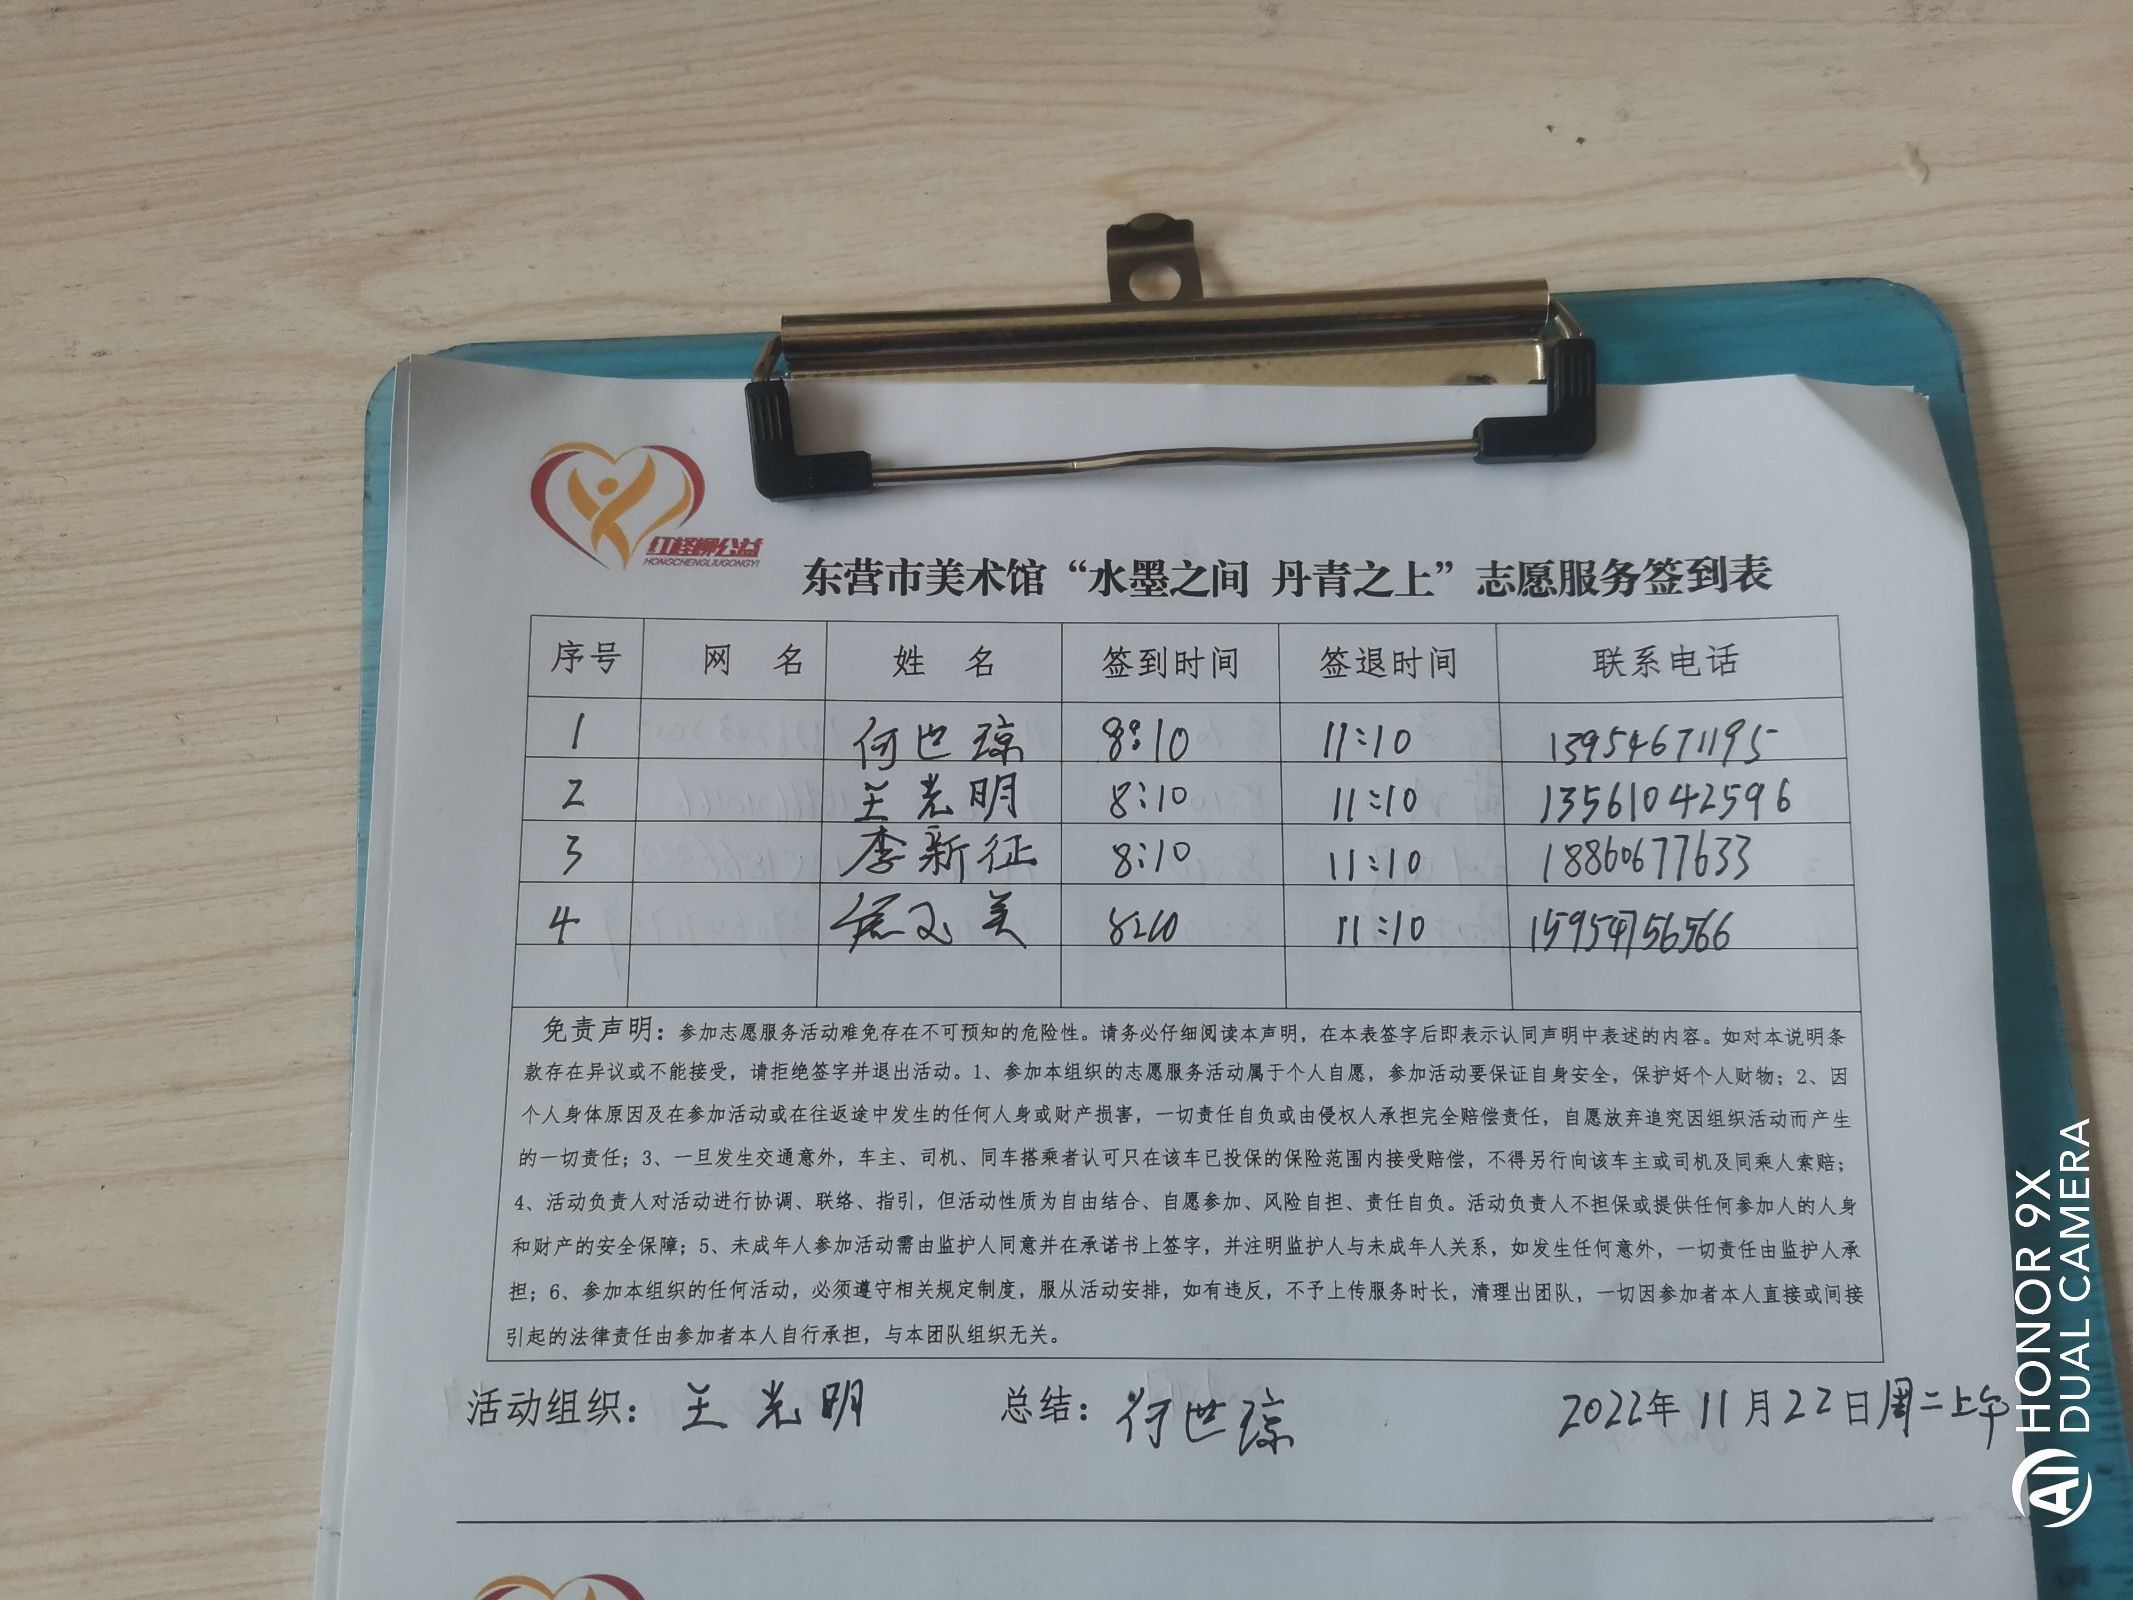 红柽柳公益
HONGCHENGLIUGONGYI
东营市美术馆“水墨之间 丹青之上”志愿服务签到表
序号 网 名 姓 名 签到时间 签退时间 联系电话
1 何世琼 8:10 11:10 13954671195
2 王光明 8:10 11:10 13561042596
3 李新征 8:10 11:10 18860677633
4 美 8:10 11:10 15954756566
免责声明：参加志愿服务活动难免存在不可预知的危险性。请务必仔细阅读本声明，在本表签字后即表示认同声明中表述的内容。如对本说明条
款存在异议或不能接受，请拒绝签字并退出活动。1、参加本组织的志愿服务活动属于个人自愿，参加活动要保证自身安全，保护好个人财物；2、因
个人身体原因及在参加活动或在往返途中发生的任何人身或财产损害，一切责任自负或由侵权人承担完全赔偿责任，自愿放弃追究因组织活动而产生
的一切责任；3、一旦发生交通意外，车主、司机、同车搭乘者认可只在该车已投保的保险范围内接受赔偿，不得另行向该车主或司机及同乘人索赔；
4、活动负责人对活动进行协调、联络、指引，但活动性质为自由结合、自愿参加、风险自担、责任自负。活动负责人不担保或提供任何参加人的人身
和财产的安全保障；5、未成年人参加活动需由监护人同意并在承诺书上签字，并注明监护人与未成年人关系，如发生任何意外，一切责任由监护人承
担；6、参加本组织的任何活动，必须遵守相关规定制度，服从活动安排，如有违反，不予上传服务时长，清理出团队，一切因参加者本人直接或间接
引起的法律责任由参加者本人自行承担，与本团队组织无关。
活动组织：王光明 总结：何世琼 2022年11月22日周二上午
HONOR 9X
DUAL CAMERA
AI